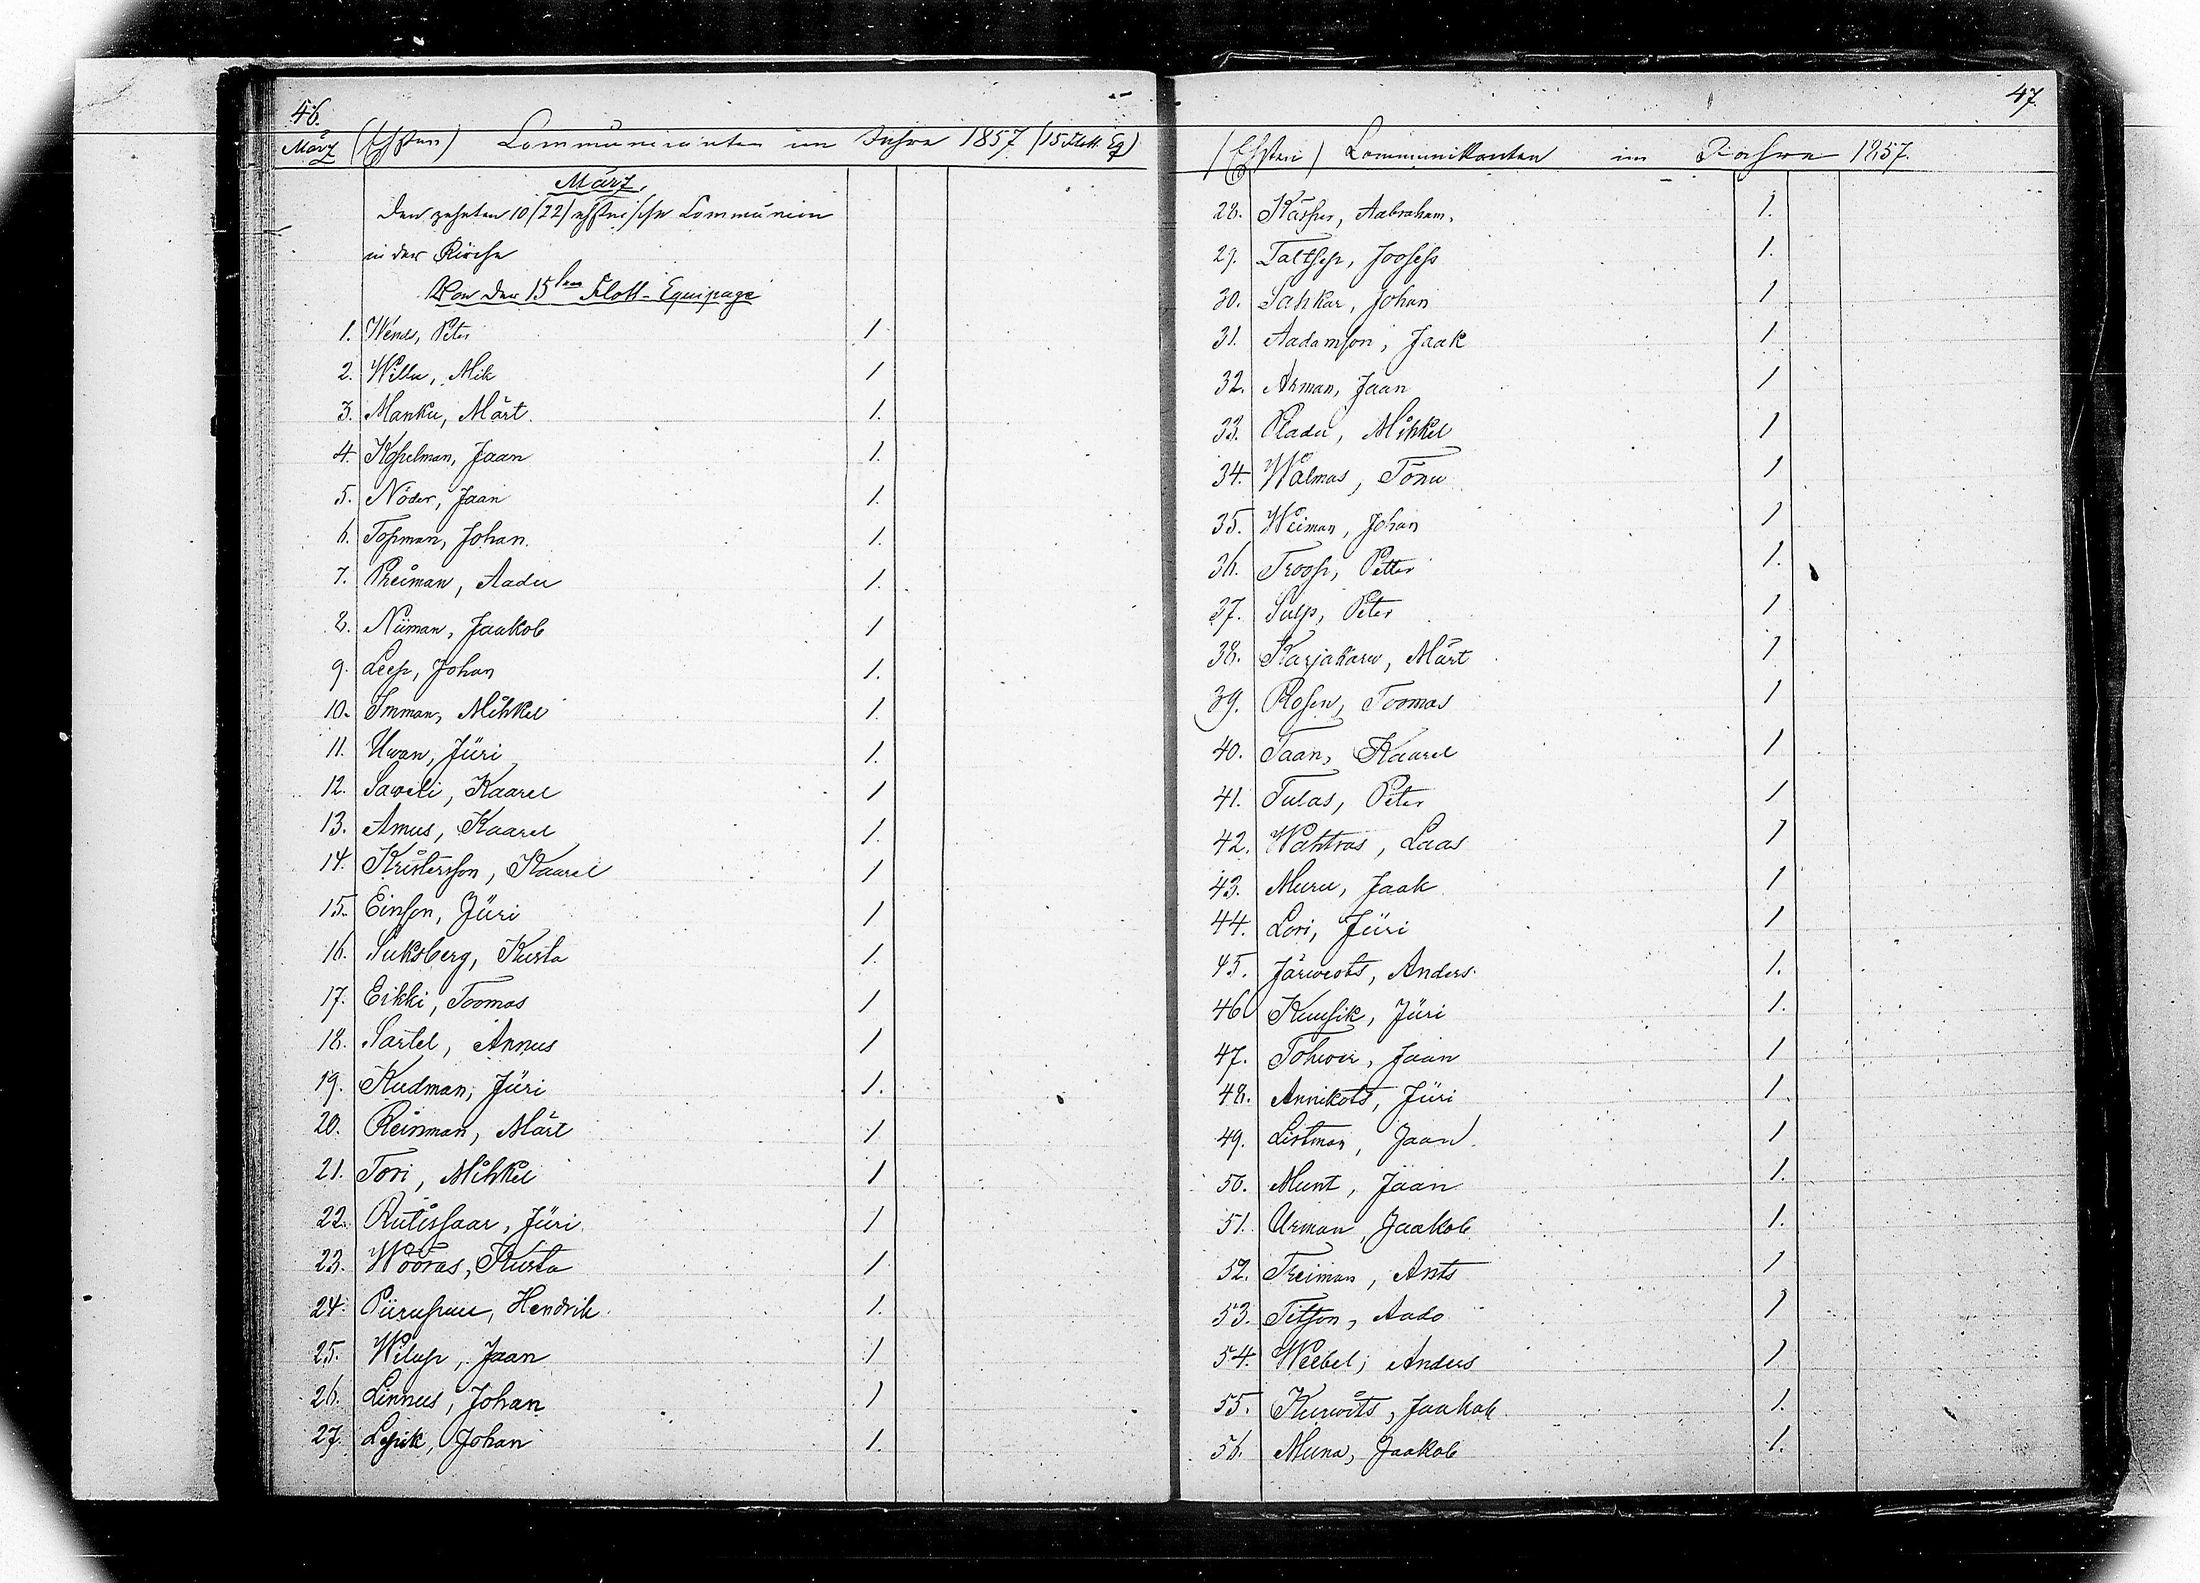 46.
März (Ehsten) Communicanten im Jahre 1857 (15 Flott. Eq)
März.
Den zehnten 10/22/ ehstnische Communion
in der Kirche
Von der 15ten Flott-Equipage
1. Wends, Peter 1.
2. Willu, Mik 1
3. Manku, Märt. 1.
4. Kopelman, Jaan 1.
5. Nöder, Jaan 1.
6. Topman, Johan. 1.
7. Preiman, Aadu 1.
8. Niman, Jaakob 1
9. Leep, Johan 1.
10. Imman, Mihkel 1.
11. Uwan, Jüri 1.
12. Saweli, Kaarel 1
13. Amus, Kaarel 1.
14. Kristersson, Kaarel 1
15. Einson, Jüri 1
16. Suksberg, Kusta 1.
17. Eikki, Toomas 1
18. Sartel, Annus 1
19. Kudman, Jüri 1.
20. Reinman, Märt 1
21. Tori, Mihkel 1
22. Rutissaar, Jüri 1
23. Wööras, Kusta 1
24. Piirupuu, Hendrik. 1.
25. Wilup, Jaan 1
26. Linnus, Johan 1
27. Lepik, Johan 1.
47.
(Ehsten) Communikanten im Jahre 1857.
28. Käsper, Aabraham. 1.
29. Taltsep, Joosep 1.
30. Sahkar, Johan 1
31. Aadamson, Jaak 1
32. Arman, Jaan 1
33. Raadu, Mihkel 1
34. Walmas, Tönu 1
35. Weiman, Johan 1
36. Troop, Petter 1.
37. Sulp, Peter 1
38. Karjakarw, Märt 1
39. Rosen, Toomas 1
40. Taan, Kaarel 1
41. Tulas, Peter 1
42. Wahtras, Laas 1
43. Muru, Jaak 1
44. Lori, Jüri 1
45. Järweots, Anders. 1.
46 Kuusik, Jüri 1.
47. Tohwer, Jaan 1
48. Annikots, Jüri 1.
49. Listman, Jaan 1
50. Munt, Jaan 1.
51. Urman, Jaakob 1.
52. Treiman, Ants 1
53. Titson, Aado 1
54. Weebel, Anders 1
55. Kurwits, Jaakob 1.
56. Muna, Jaakob 1.